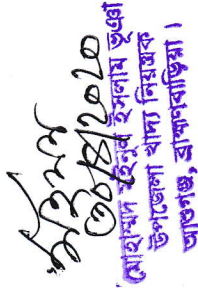 ৩০/৪/২০২০
মোহাম্মদ মইনুল ইসলাম ভূঞা
উপজেলা খাদ্য নিয়ন্ত্রক
আশুগঞ্জ, ব্রাহ্মণবাড়িয়া।